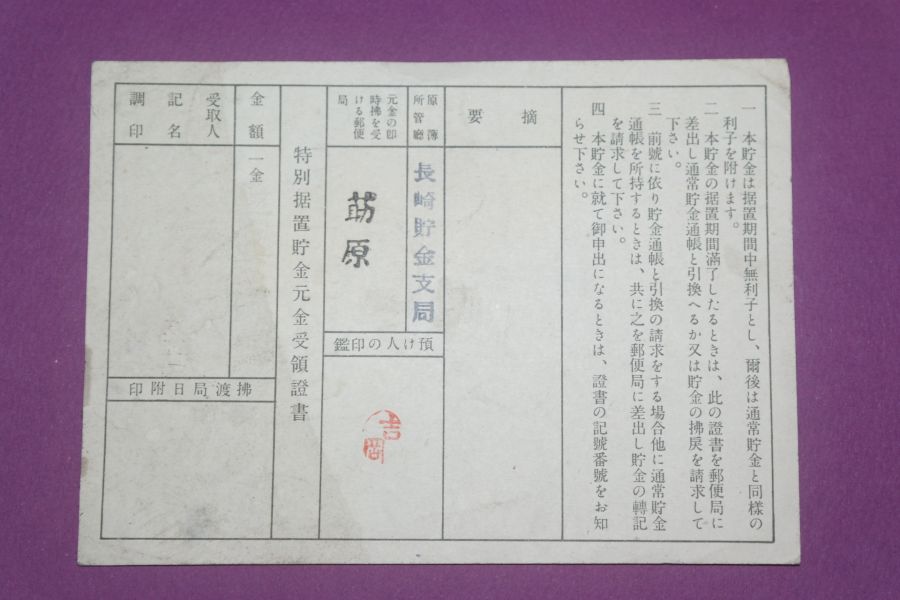 一　本貯金は据置期間中無利子とし、爾後は通常貯金と同樣の
利子を附けます。
二　本貯金の据置期間滿了したるときは、此の證書を郵便局に
差出し通常貯金通帳と引換へるか又は貯金の拂戾を請求して
下さい。
三　前號に依り貯金通帳と引換の請求をする場合他に通常貯金
通帳を所持するときは、共に之を郵便局に差出し貯金の轉記
を請求して下さい。
四　本貯金に就て御申出になるときは、證書の記號番號をお知
らせ下さい。
摘要
原簿
所管廳
長崎貯金支局
元金の卽
時拂を受
ける郵便
局
莇原
預け人の印鑑
吉岡
特別据置貯金元金受領證書
金額
一金
受取人
記名
調印
拂渡局日附印